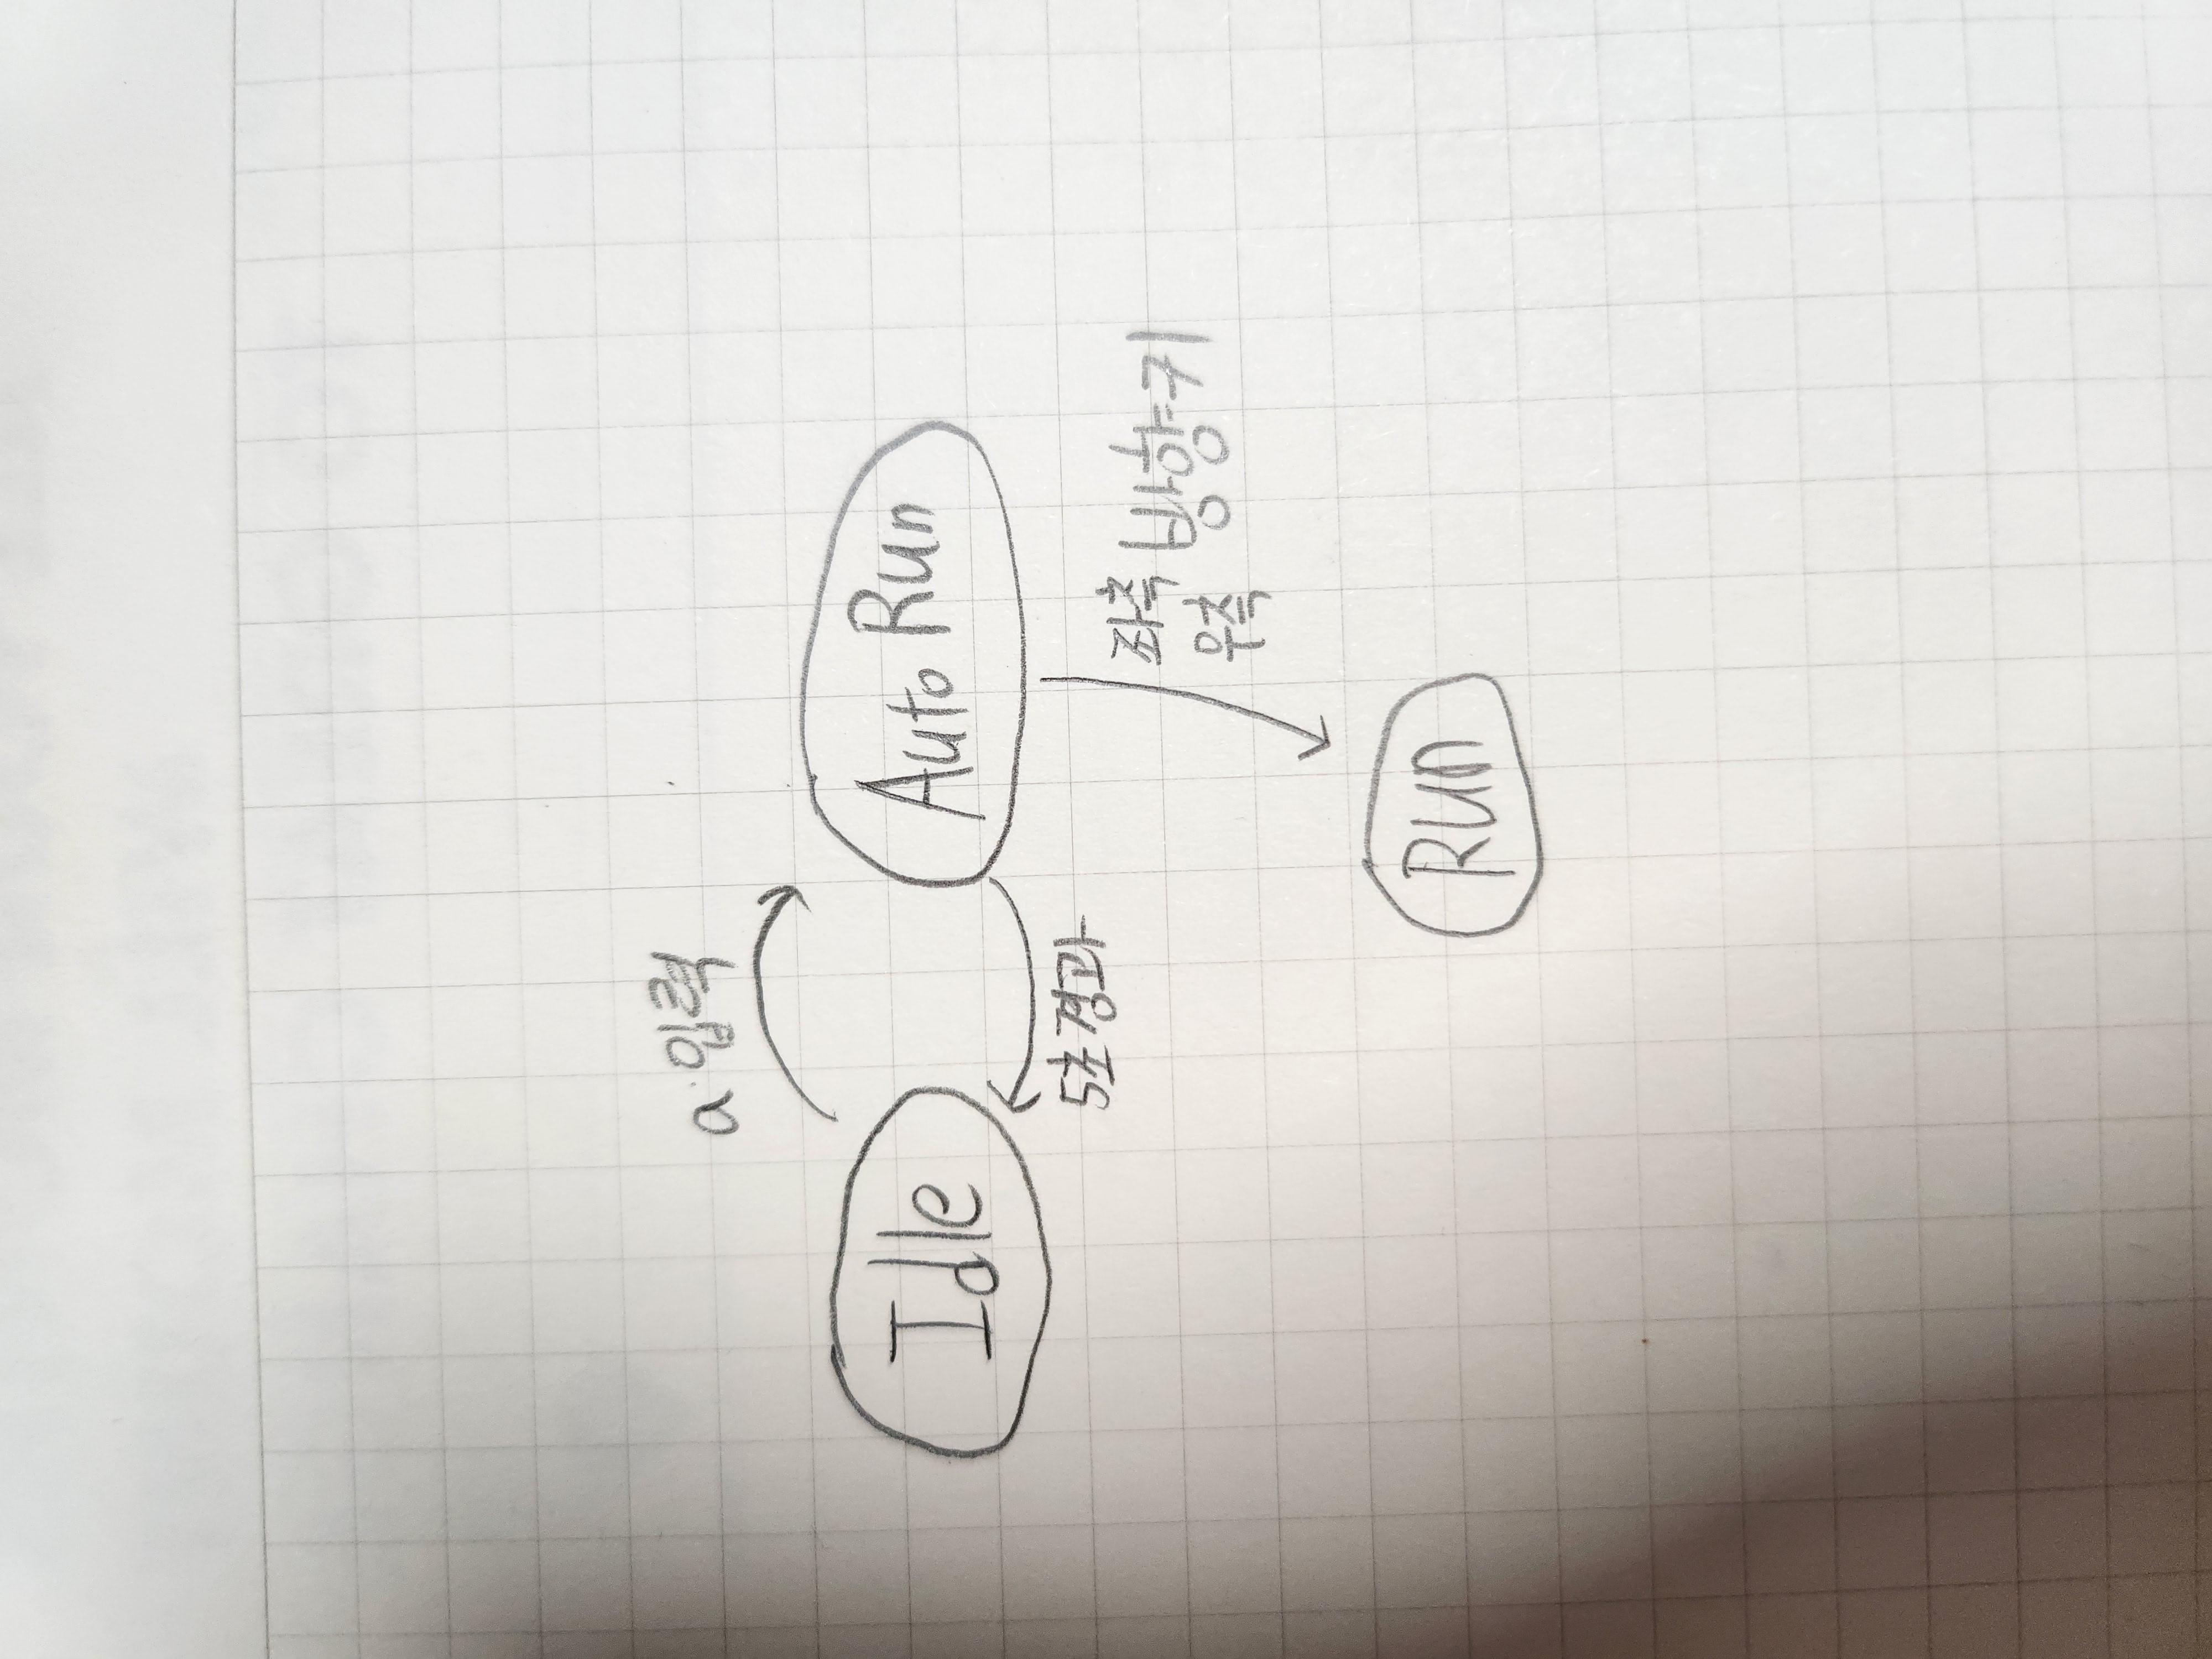 a 입력
Idle
Auto Run
5초 경과
좌측 방향키
우측
Run